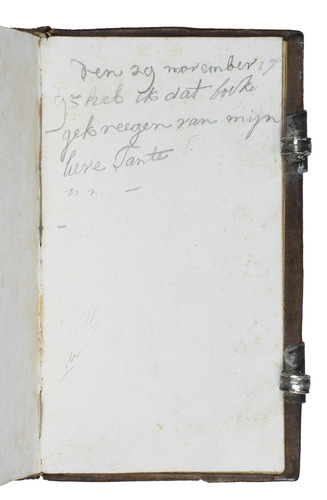 den 29 november 17
95 heb ik dat boekie
gekreegen van mijn
lieve Tante